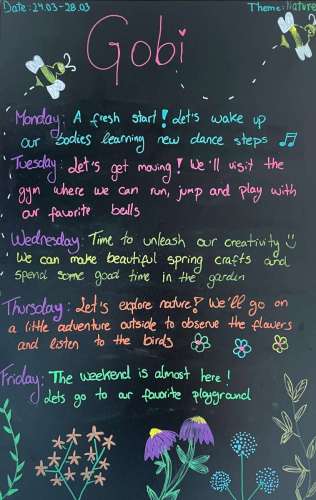 Date: 24.03-28.03
Theme: Nature
Gobi
Monday: A fresh start! Let's wake up
our bodies learning new dance steps
Tuesday: Let's get moving! We'll visit the
gym where we can run, jump and play with
our favorite bells
Wednesday: Time to unleash our creativity
We can make beautiful spring crafts and
spend some good time in the garden
Thursday: Let's explore nature! We'll go on
a little adventure outside to observe the flowers
and listen to the birds
Friday: The weekend is almost here!
Lets go to our favorite playground